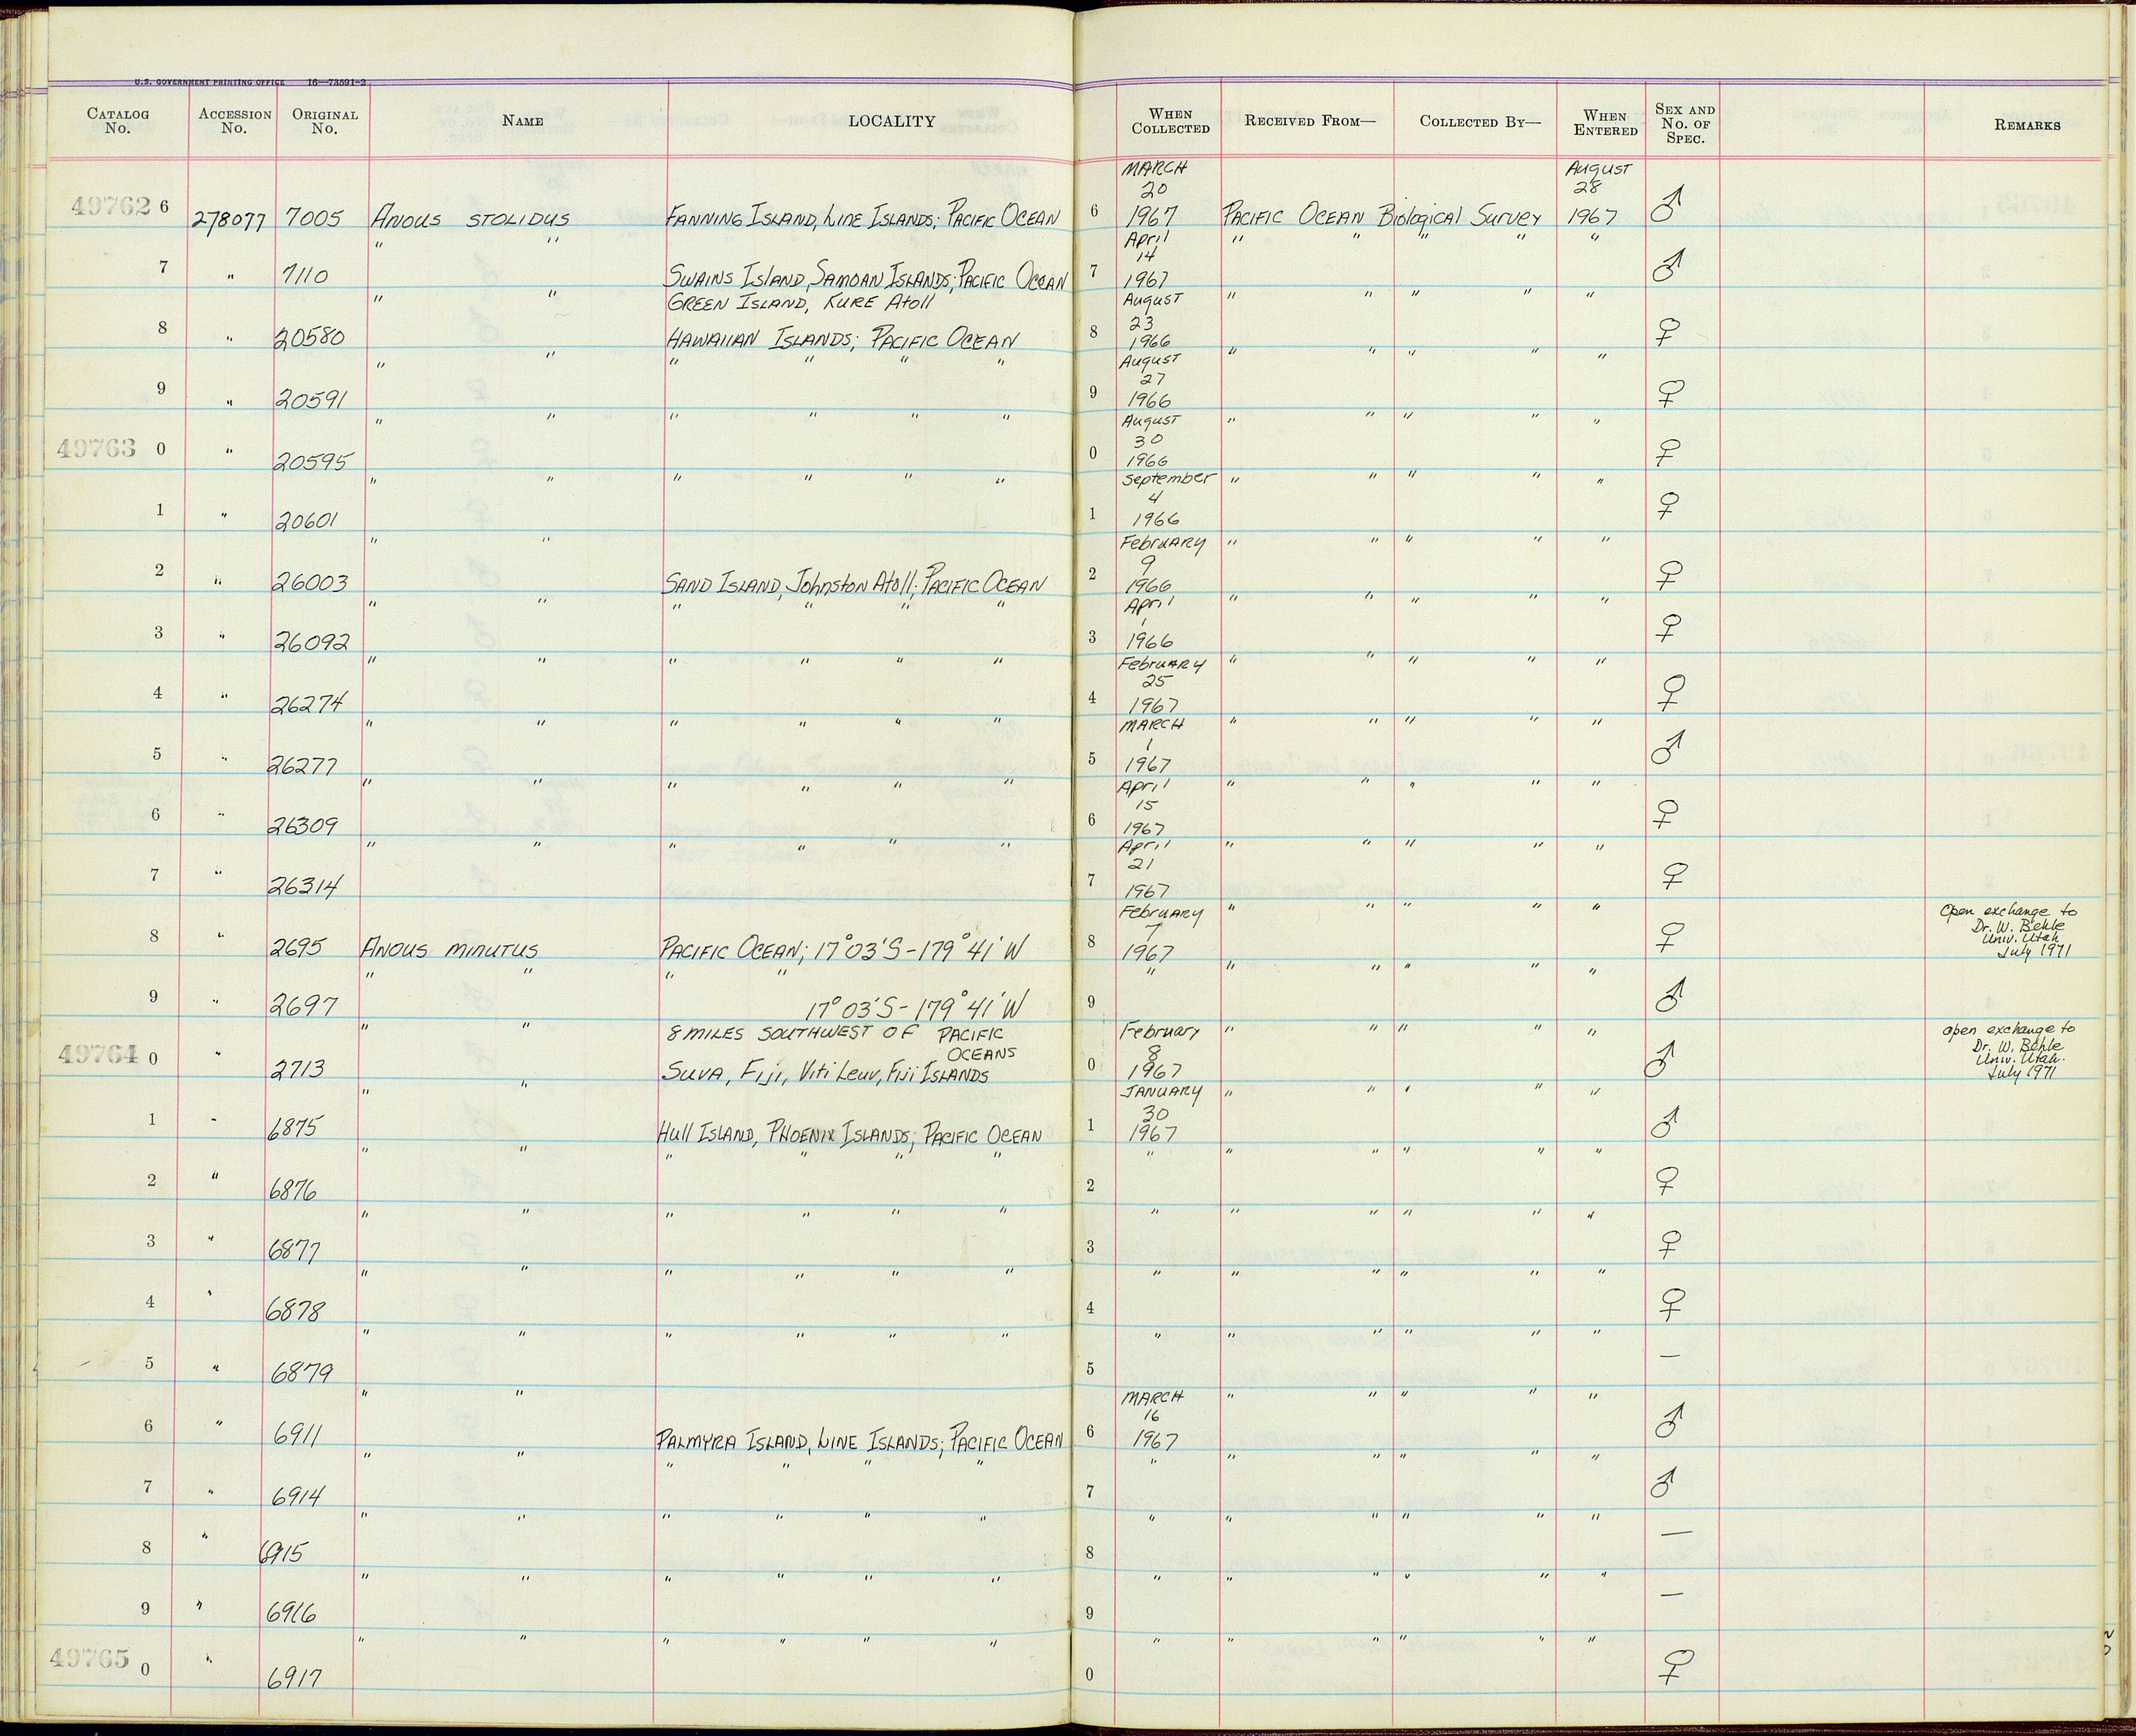 U.S. GOVERNMENT PRINTING OFFICE 16—73591-2
CATALOG No. ACCESSION No. ORIGINAL No. NAME LOCALITY WHEN COLLECTED RECEIVED FROM— COLLECTED BY— WHEN ENTERED SEX AND No. OF SPEC. REMARKS
MARCH August
20 28
49762 6 278077 7005 ANOUS STOLIDUS FANNING ISLAND, LINE ISLANDS; PACIFIC OCEAN 6 1967 PACIFIC OCEAN Biological Survey 1967 ♂
" " April " " " " "
14
7 " 7110 SWAINS Island, SAMOAN ISLANDS; PACIFIC OCEAN 7 1967 ♂
" " GREEN ISLAND, KURE Atoll August " " " " "
23
8 " 20580 HAWAIIAN ISLANDS; PACIFIC OCEAN 8 1966 ♀
" " " " " " August " " " " "
27
9 " 20591 9 1966 ♀
" " " " " " August " " " " "
30
49763 0 " 20595 0 1966 ♀
" " " " " " September " " " " "
4
1 " 20601 1 1966 ♀
" " February " " " " "
9
2 " 26003 SAND ISLAND, Johnston Atoll; PACIFIC OCEAN 2 1966 ♀
" " " " " " April " " " " "
1
3 " 26092 3 1966 ♀
" " " " " " February " " " " "
25
4 " 26274 4 1967 ♀
" " " " " " MARCH " " " " "
1
5 " 26277 5 1967 ♂
" " " " " " April " " " " "
15
6 " 26309 6 1967 ♀
" " " " " " April " " " " "
21
7 " 26314 7 1967 ♀
February " " " " " Open exchange to
7 Dr. W. Behle
Univ. Utah
8 " 2695 ANOUS MINUTUS PACIFIC OCEAN; 17°03'S-179°41'W 8 1967 ♀ July 1971
" " " " " " " " " "
9 " 2697 17°03'S-179°41'W 9 ♂
" " 8 MILES SOUTHWEST OF PACIFIC February " " " " " open exchange to
OCEANS 8 Dr. W. Behle
Univ. Utah.
49764 0 " 2713 SUVA, Fiji, Viti Leuv, Fiji ISLANDS 0 1967 ♂ July 1971
" " JANUARY " " " " "
30
1 " 6875 Hull ISLAND, PHOENIX ISLANDS; PACIFIC OCEAN 1 1967 ♂
" " " " " " " " " " " "
2 " 6876 2 ♀
" " " " " " " " " " " "
3 " 6877 3 ♀
" " " " " " " " " " " "
4 " 6878 4 ♀
" " " " " " " " " " " "
5 " 6879 5 —
" " MARCH " " " " "
16
6 " 6911 PALMYRA ISLAND, LINE ISLANDS; PACIFIC OCEAN 6 1967 ♂
" " " " " " " " " " " "
7 " 6914 7 ♂
" " " " " " " " " " " "
8 " 6915 8 —
" " " " " " " " " " " "
9 " 6916 9 —
" " " " " " " " " " " "
49765 0 " 6917 0 ♀